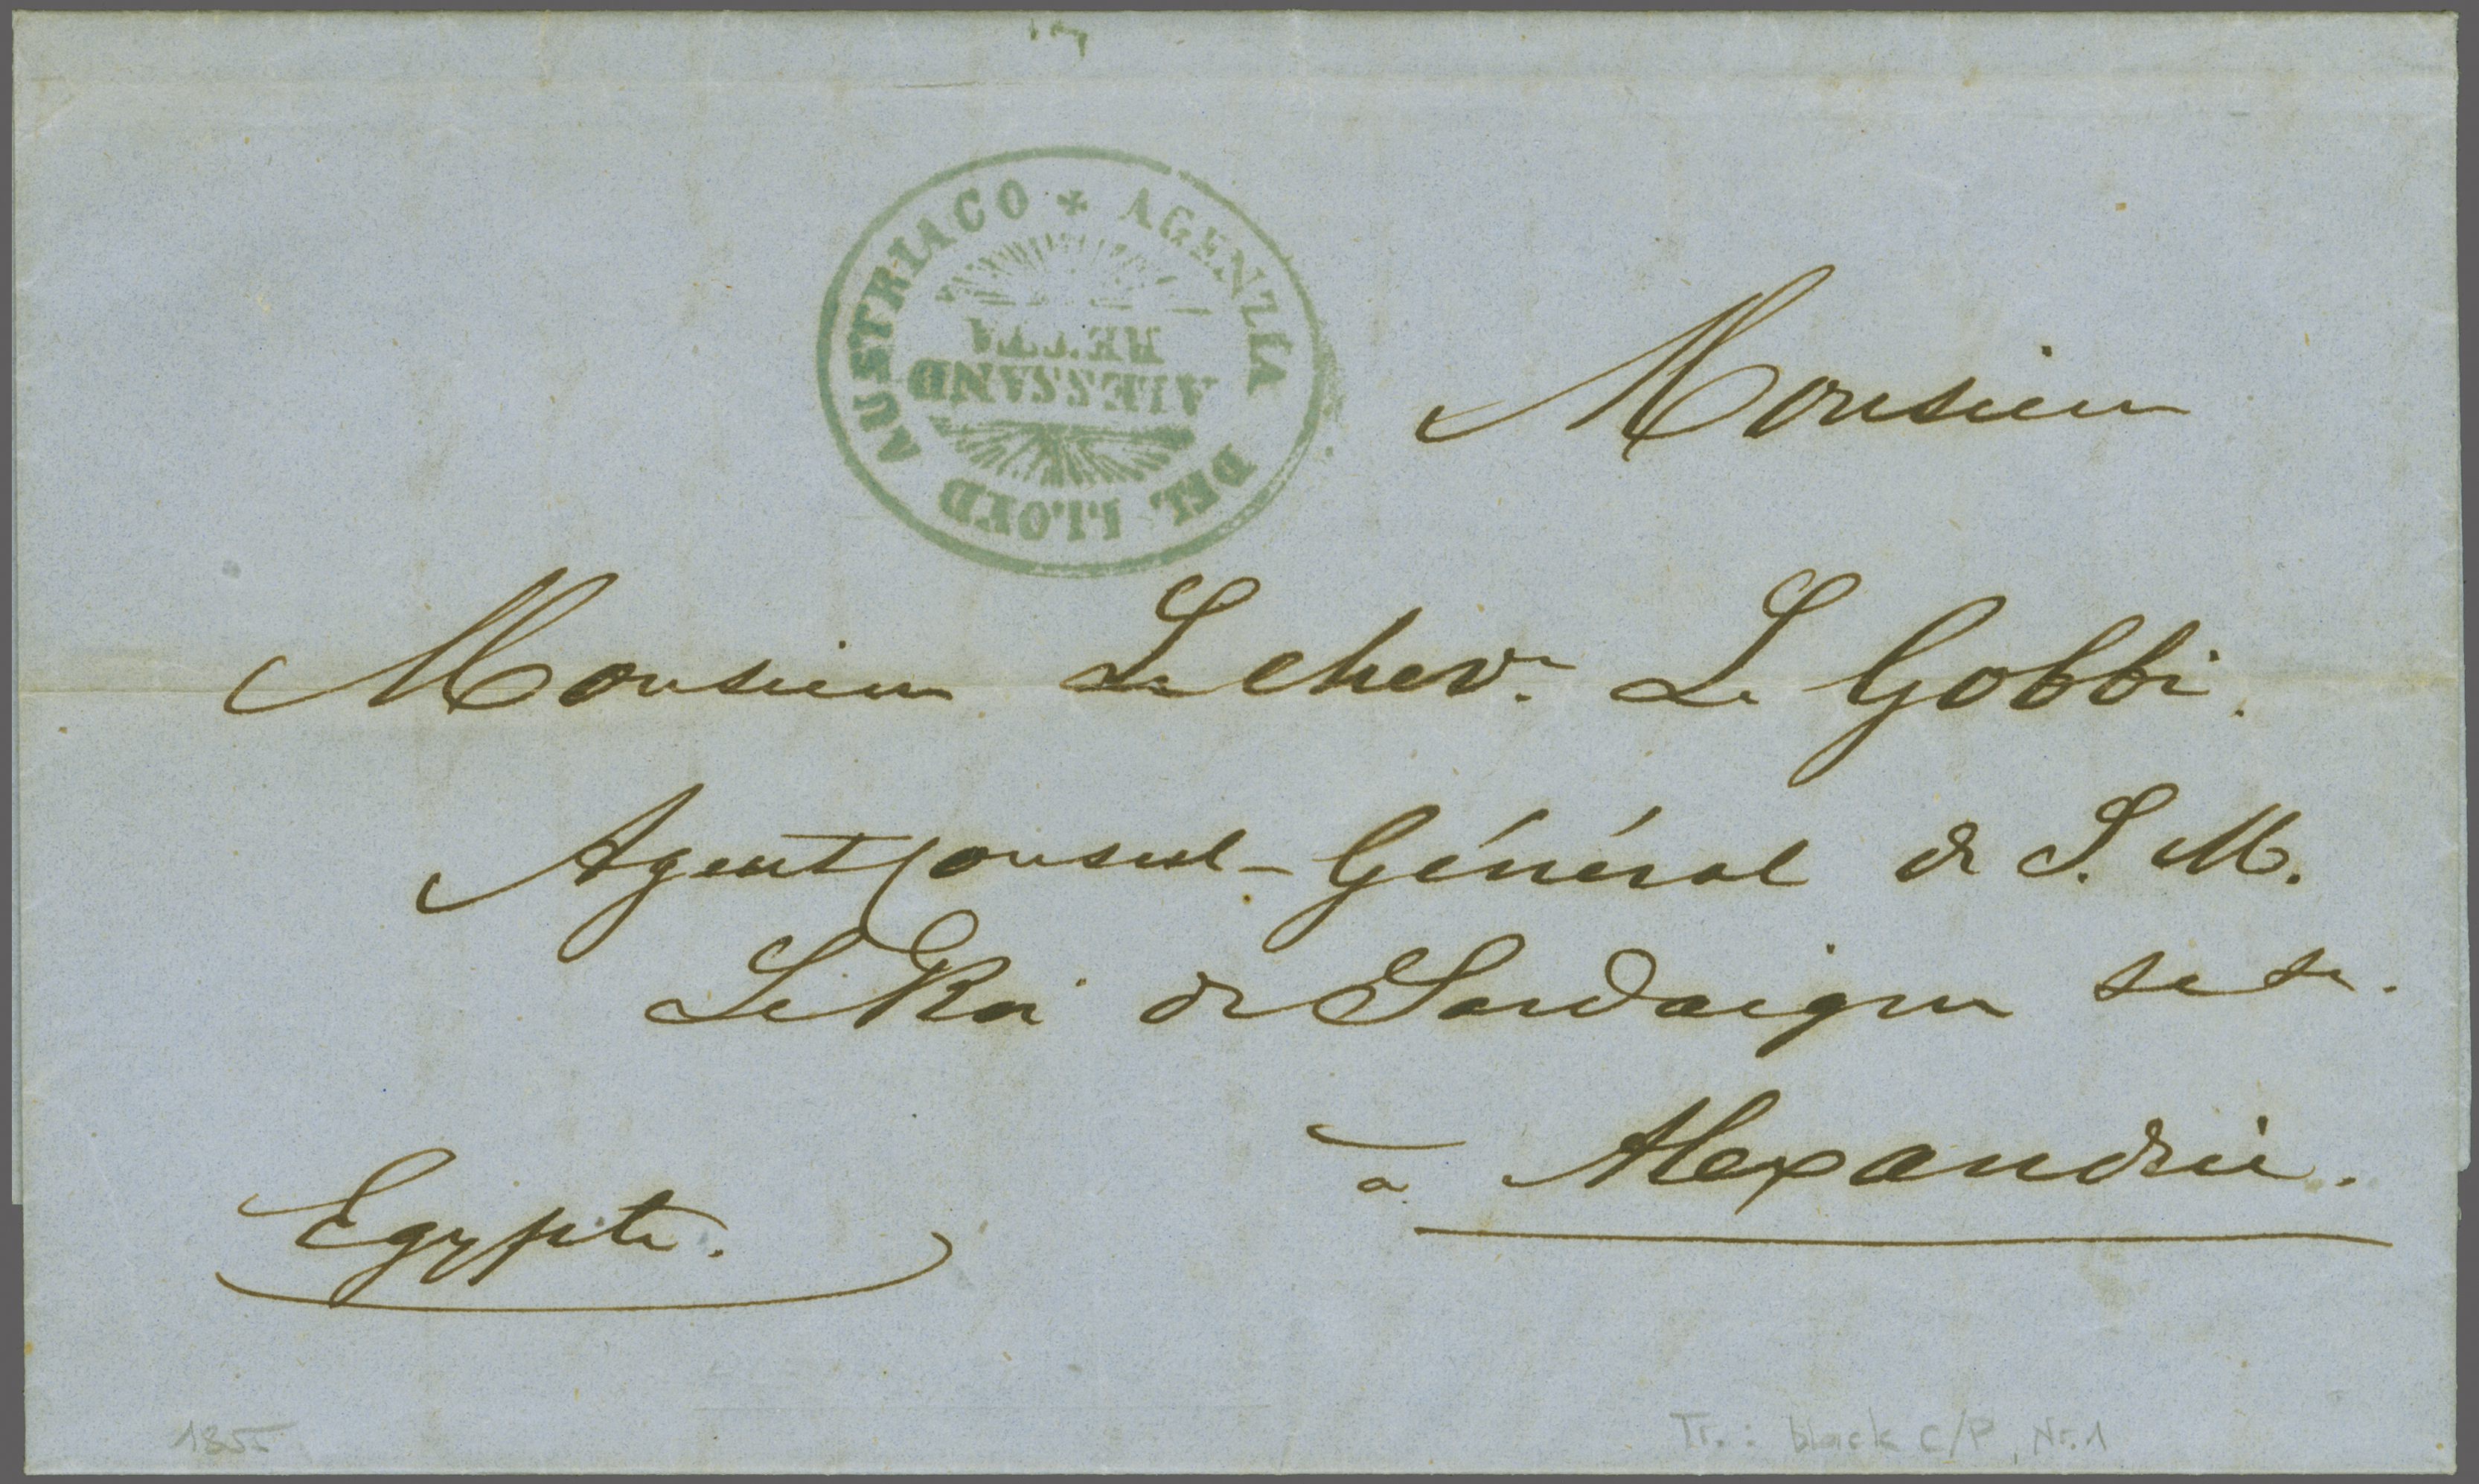 AGENZIA DEL LLOYD AUSTRIACO
ALESSAND
Monsieur
Monsieur Le chevr. Le Gobbi.
Agent Consul-Général de S. M.
Le Roi de Sardaigne
à Alexandrie.
Egypte.
1855 Tr.: black C/P, Nr. 1